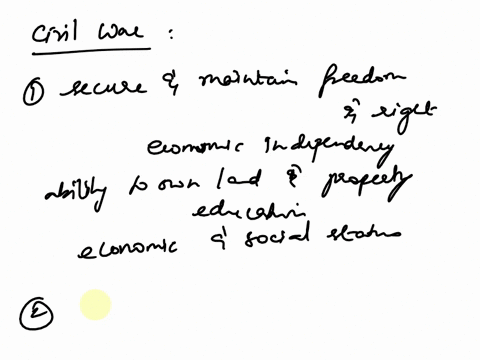 Civil War :
① secure & maintain freedom
& right
economic independency
ability to own land & property
education
economic & social status
②